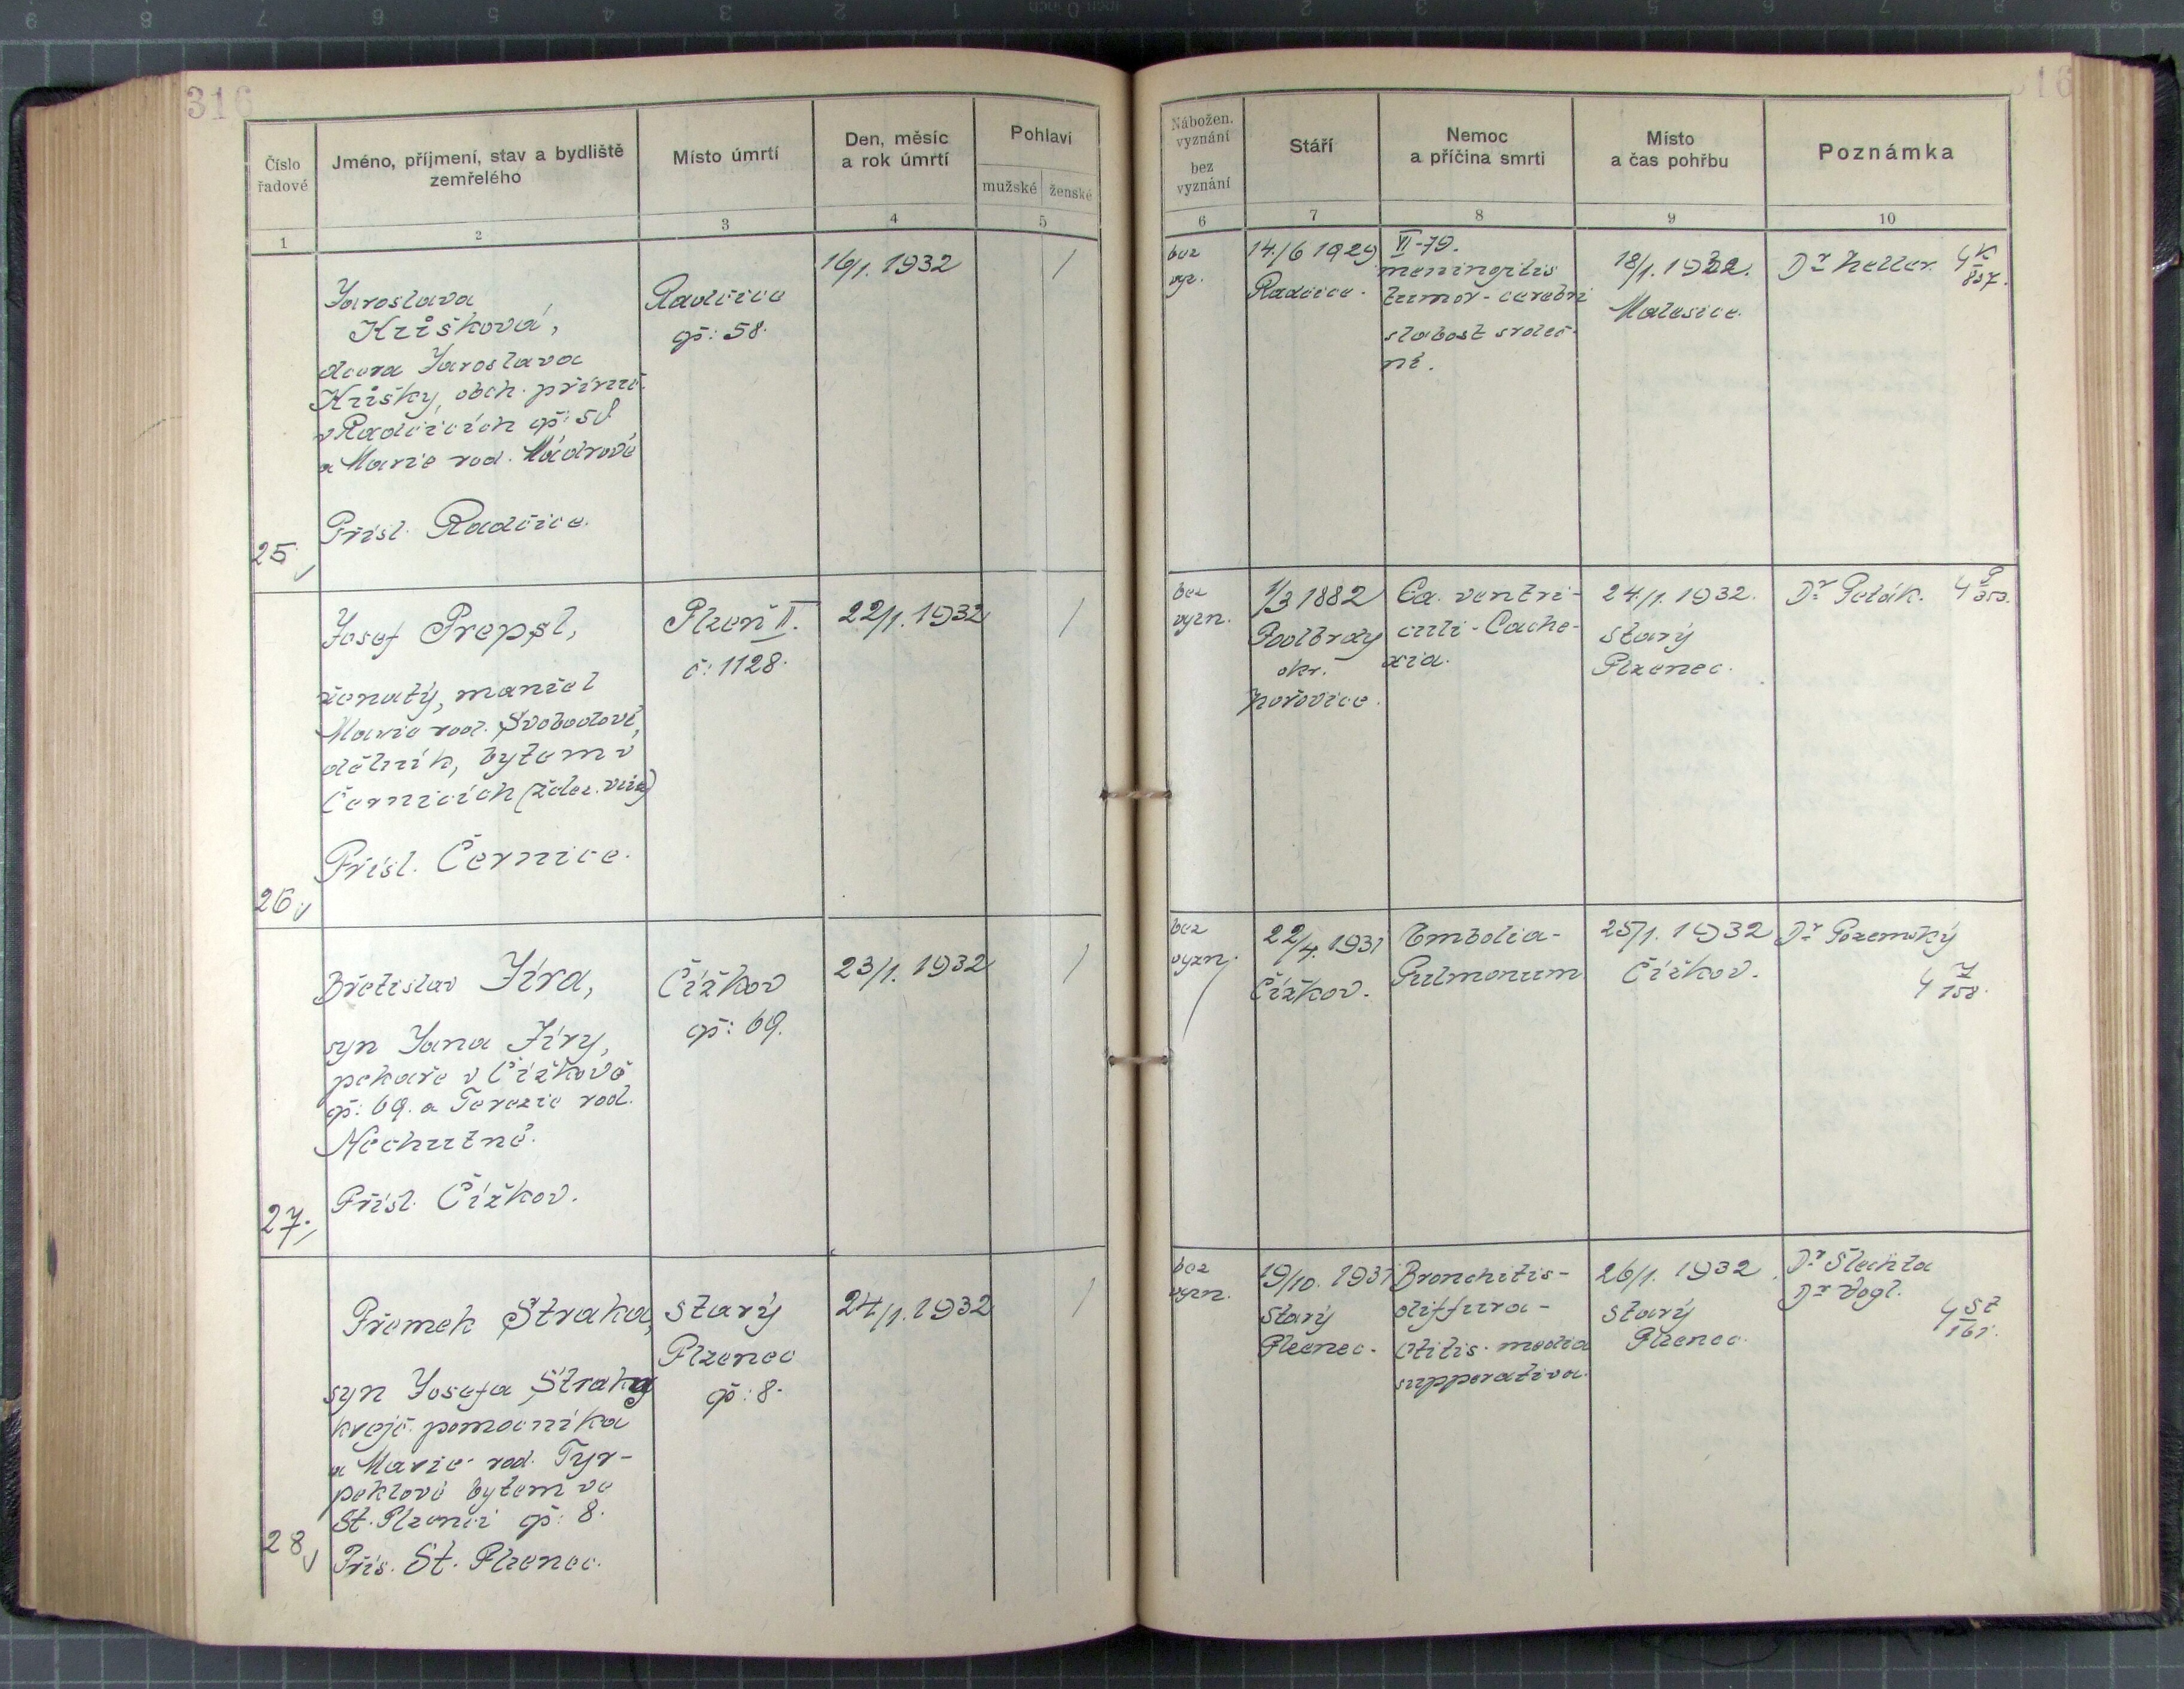 316
Číslo
řadové
Jméno, příjmení, stav a bydliště
zemřelého
Místo úmrtí
Den, měsíc
a rok úmrtí
Pohlaví
mužské
ženské
1
2
3
4
5
Nábožen.
vyznání
bez
vyznání
Stáří
Nemoc
a příčina smrti
Místo
a čas pohřbu
Poznámka
6
7
8
9
10
25
Jaroslava
Kříšková,
dcera Jaroslava
Kříšky, obch. příruč.
v Radčicích čp: 58
a Marie rod. Mádrové
Přísl. Radčice.
Radčice
čp: 58.
16/1. 1932
/
bez
vyz.
14./6 1929
Radčice.
VI-79.
meningitis
tumor - cerebri
slabost srdeč-
ní.
18/1. 1932.
Malesice.
Dr Keller
4 K
857.
26
Josef Prepsl,
ženatý, manžel
Marie rod. Svobodové,
dělník, bytem v
Černicích (želez. vůz)
Přísl. Černice.
Plzeň II.
č: 1128.
22/1. 1932
/
bez
vyzn.
1/3 1882
Podbrdy
okr.
Hořovice.
Ca. ventri-
culi - Cache-
xia.
24./1. 1932.
Starý
Plzenec.
Dr Peták.
4 P
27.
Břetislav Jíra,
syn Jana Jíry,
pekaře v Čížkově
čp: 69. a Terezie rod.
Nechutné.
Přísl. Čížkov.
Čížkov
čp: 69.
23/1. 1932
/
bez
vyzn.
22/4. 1931
Čížkov.
Embolia-
Pulmonum
25/1. 1932
Čížkov.
Dr Pozemský
4 J
158.
28
Přemek Straka,
syn Josefa Straky
krejč. pomocníka
a Marie rod. Tyr-
peklové bytem ve
St. Plzenci čp: 8.
Přís. St. Plzenec.
Starý
Plzenec
čp: 8.
24/1. 1932
/
bez
vyzn.
19/10. 1931
Starý
Plzenec.
Bronchitis-
diffusa-
Otitis. media
supporativa.
26/1. 1932
Starý
Plzenec.
Dr Šlechta
Dr Vogl.
4 St
161.